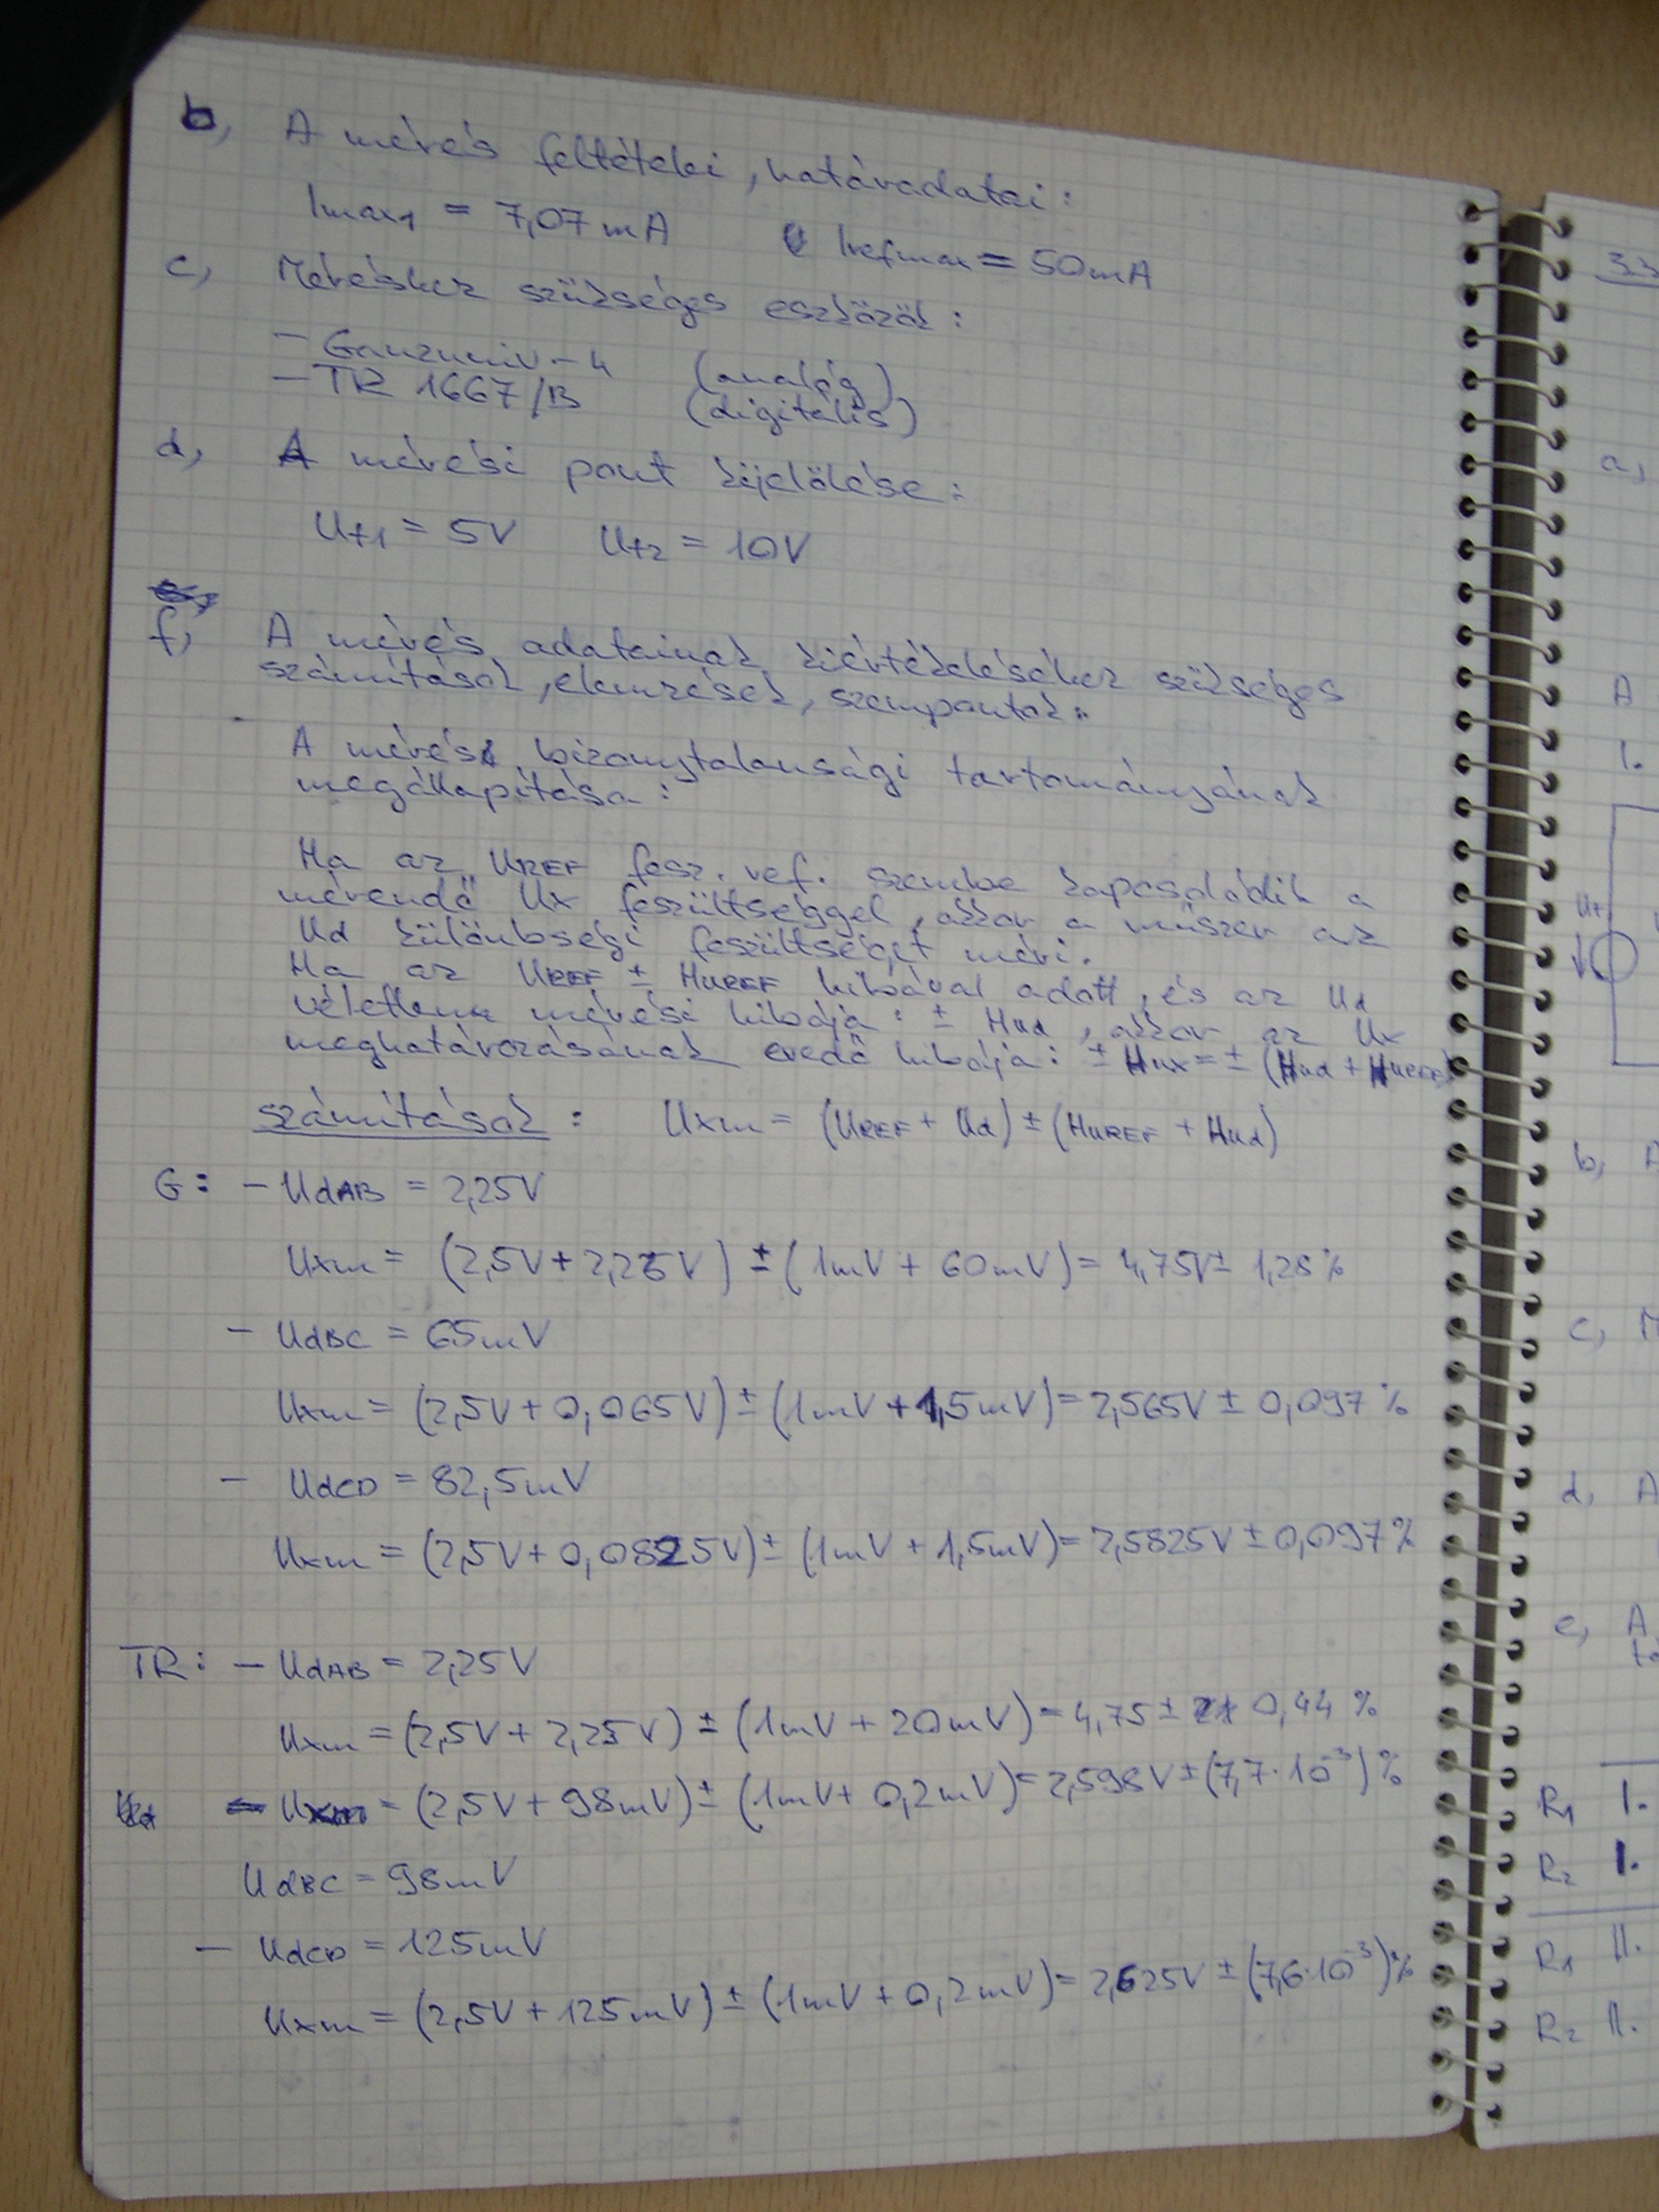 b, A mérés feltételei, határadatai:
Imax1 = 7,07mA Irefmax = 50mA
c, Méréshez szükséges eszközök:
- Ganzuniv-4 (analóg)
- TR 1667/B (digitális)
d, A mérési pont kijelölése:
Ut1 = 5V Ut2 = 10V
f, A mérés adatainak kiértékeléséhez szükséges
számítások, elemzések, szempontok:
A mérés bizonytalansági tartományának
megállapítása:
Ha az UREF fesz. ref. szembe kapcsolódik a
mérendő Ux feszültséggel, akkor a műszer az
Ud különbségi feszültséget méri.
Ha az UREF ± HUREF hibával adott, és az Ud
véletlen mérési hibája: ± HUd, akkor az Ux
meghatározásának eredő hibája: ± HUx = ± (HUd + HUREF)
számítások: Uxm = (UREF + Ud) ± (HUREF + HUd)
G: - UdAB = 2,25V
Uxm = (2,5V + 2,25V) ± (1mV + 60mV) = 4,75V ± 1,28%
- UdBC = 65mV
Uxm = (2,5V + 0,065V) ± (1mV + 1,5mV) = 2,565V ± 0,097%
- UdCD = 82,5mV
Uxm = (2,5V + 0,0825V) ± (1mV + 1,5mV) = 2,5825V ± 0,097%
TR: - UdAB = 2,25V
Uxm = (2,5V + 2,25V) ± (1mV + 20mV) = 4,75 ± 0,44 %
Uxm = (2,5V + 98mV) ± (1mV + 0,2mV) = 2,598V ± (7,7·10⁻³)%
UdBC = 98mV
- UdCD = 125mV
Uxm = (2,5V + 125mV) ± (1mV + 0,2mV) = 2,625V ± (7,6·10⁻³)%
a,
A
1.
Ut
b, A
c, M
d, A
e, A
R1 I.
R2 I.
R1 II.
R2 II.